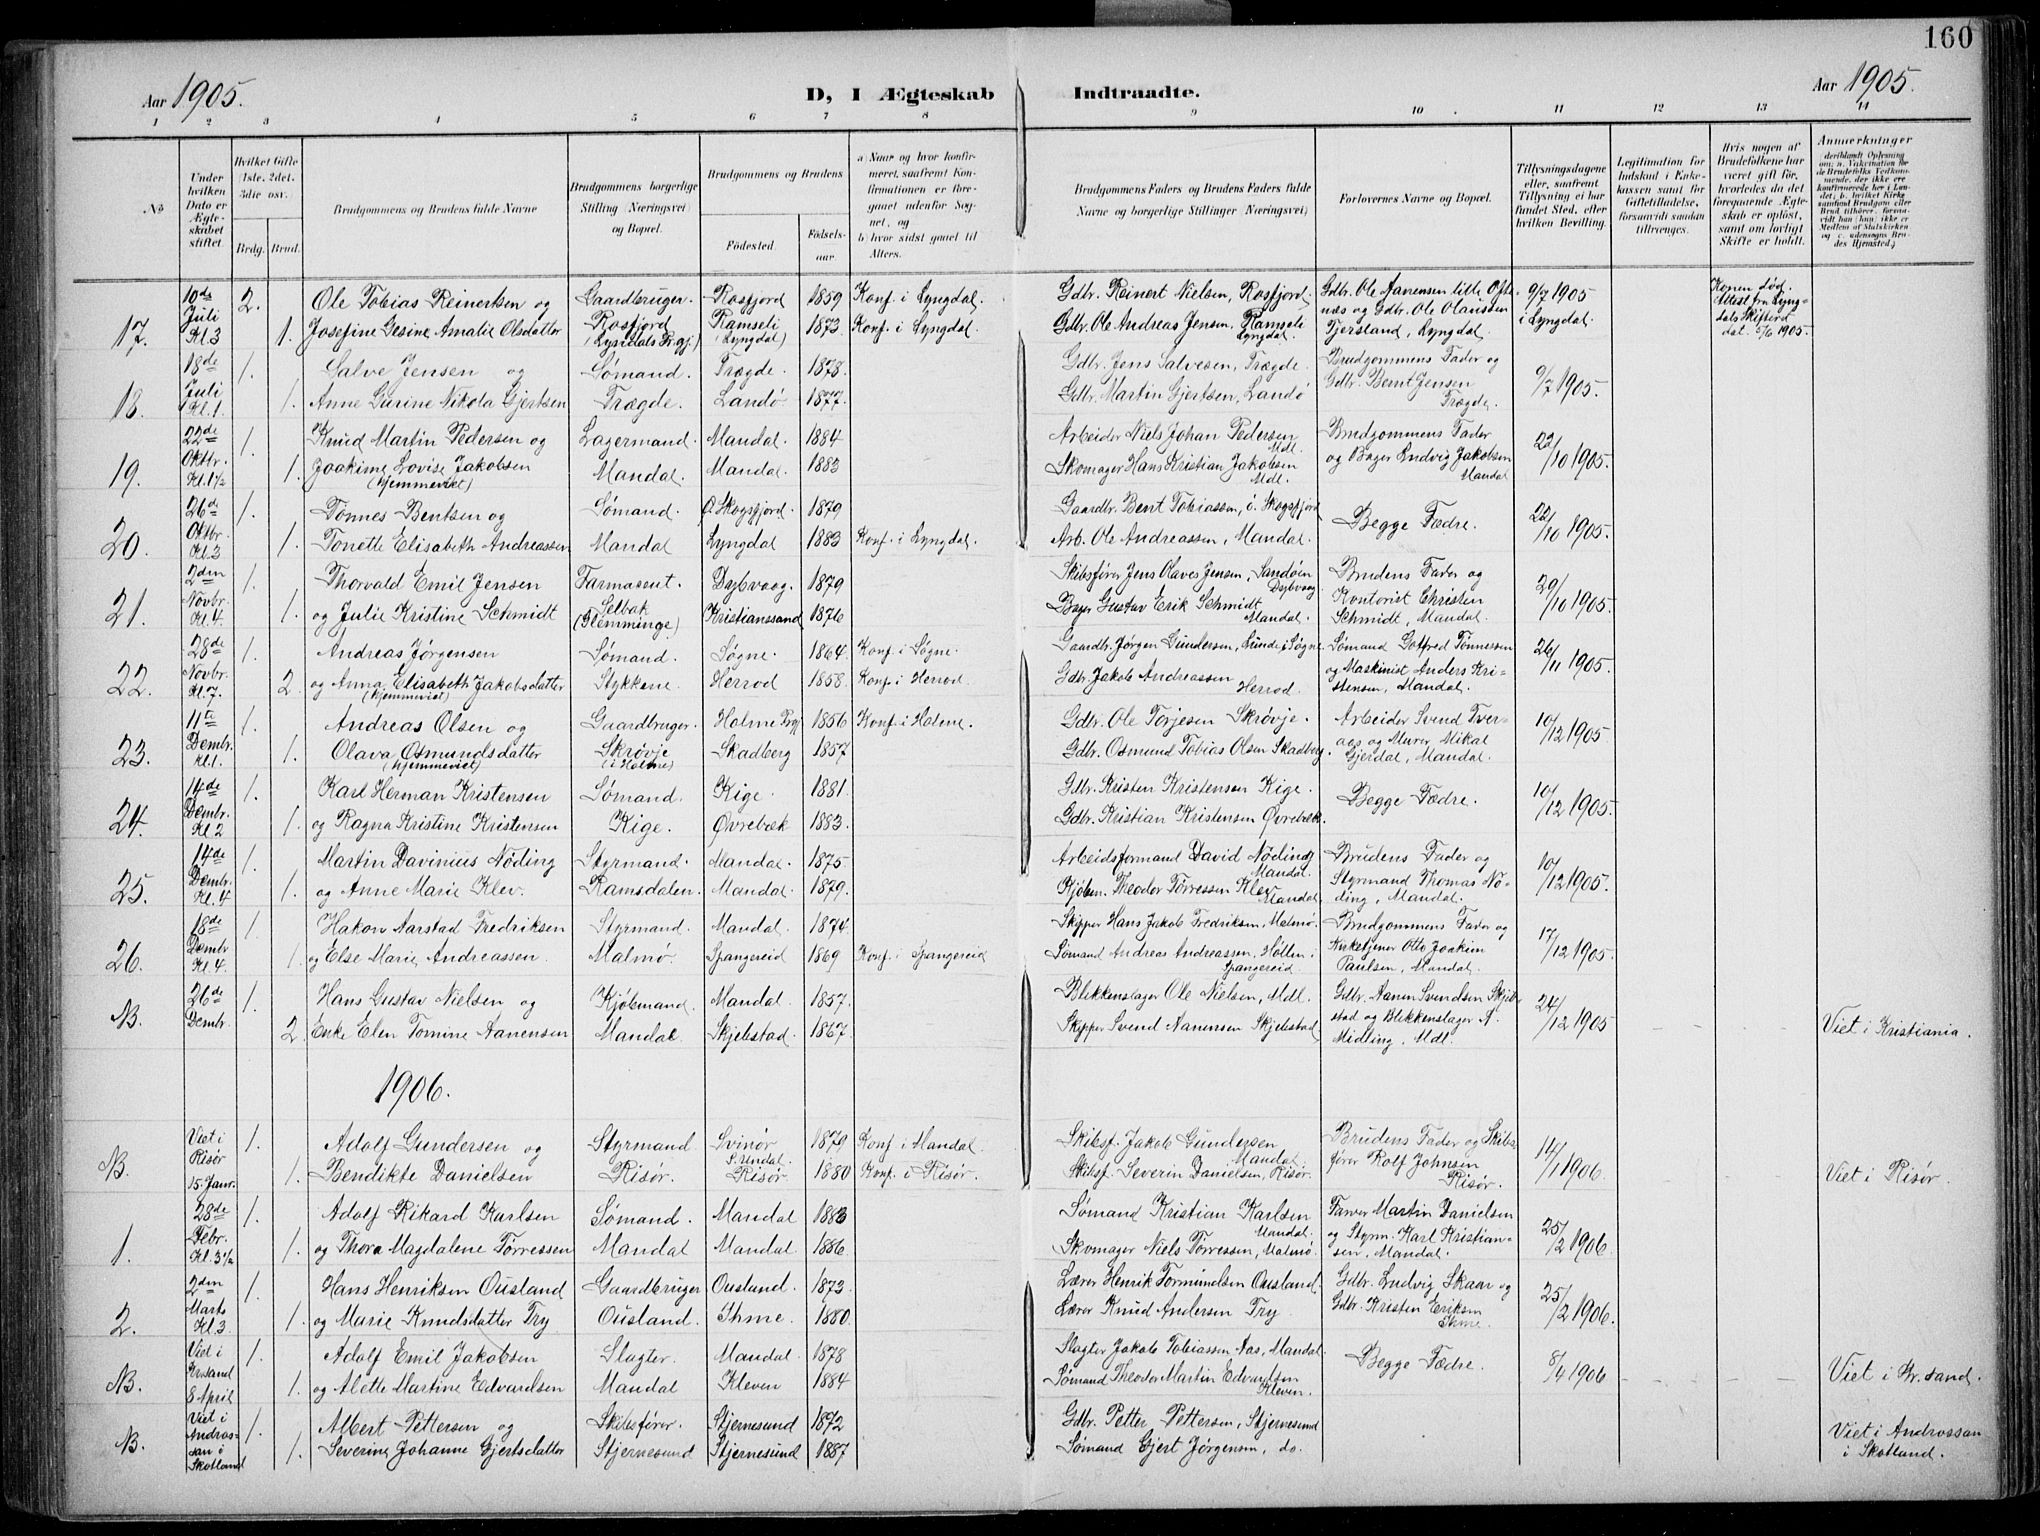 160
Aar 1905.
D, I Ægteskab Indtraadte.
Aar 1905.
1 2 3 4 5 6 7 8 9 10 11 12 13 14
No
Under hvilken Dato er Ægteskabet stiftet.
Hvilket Gifte (1ste, 2det, 3die osv.
Brdg. Brud.
Brudgommens og Brudens fulde Navne
Brudgommens borgerlige Stilling (Næringsvei) og Bopæl.
Brudgommens og Brudens
Fødested. Fødselsaar.
a) Naar og hvor konfirmeret, saafremt Konfirmationen er foregaaet udenfor Sognet, og b) hvor sidst gaaet til Alters.
Brudgommens Faders og Brudens Faders fulde Navne og borgerlige Stillinger (Næringsvei)
Forlovernes Navne og Bopæl.
Tillysningsdagene eller, saafremt Tillysning ei har fundet Sted, efter hvilken Bevilling.
Legitimation for Indskud i Enkekassen samt for Giftetilladelse, forsaavidt saadan tiltrænges.
Hvis nogen af Brudefolkene har været gift før, hvorledes da det foregaaende Ægteskab er opløst, samt om lovligt Skifte er holdt.
Anmerkninger
17. 10de Juli Kl. 3 2. 1.
Ole Tobias Reinertsen og Gaardbruger. Rosfjord 1859 Konf. i Lyngdal. Gdbr. Reinert Nielsen, Rosfjord. Gdbr. Ole Aanensen lille Ofte- 9/7 1905 Konen død.
Josefine Gesine Amalie Olsdatter Rosfjord (Lyngdals Prgj.) Ramseli (Lyngdal) 1873. Konf. i Lyngdal. Gdbr. Ole Andreas Jensen, Ramseli Lyngdal. næs og Gdbr. Ole Olaussen Tjersland, Lyngdal. i Lyngdal. Attest fra Lyngdals Skifteret dat. 5/6 1905.
18. 18de Juli Kl. 1. 1. 1.
Salve Jensen og Sømand. Trægde. 1878. Gdbr. Jens Salvesen, Trægde. Brudgommens Fader og
Anne Gurine Nikola Gjertsen Trægde. Landø 1877. Gdbr. Martin Gjertsen, Landø Gdbr. Bernt Jensen Trægde. 9/7 1905.
19. 22de Oktbr. Kl. 1½ 1. 1.
Knud Martin Pedersen og Lagermand. Mandal. 1884 Arbeider Niels Johan Pedersen Mdl. Brudgommens Fader
Joakime Lovise Jakobsen (hjemmeviet) Mandal. Mandal. 1883 Skomager Hans Kristian Jakobsen Mdl. og Bager Ludvig Jakobsen Mandal 22/10 1905.
20. 26de Oktbr. Kl. 3 1. 1.
Tønnes Bentsen og Sømand. Ø. Skogsfjord. 1879 Gaardbr. Bent Tobiassen, ø. Skogsfjord Begge Fædre.
Tonette Elisabeth Andreassen Mandal Lyngdal 1883 Konf. i Lyngdal. Arb. Ole Andreassen, Mandal. 22/10 1905.
21. 2den Novbr. Kl. 4. 1. 1.
Thorvald Emil Jensen Farmaceut. Dybvaag. 1879 Skibsfører Jens Olaves Jensen, Sandøen Dybvaag. Brudens Fader og
og Julie Kristine Schmidt Selbak (Glemminge) Kristianssand 1876 Bager Gustav Erik Schmidt Mandal. Kontorist Christen Schmidt, Mandal. 29/10 1905.
22. 28de Novbr. Kl. 7. 1. 2.
Andreas Jørgensen Sømand. Søgne. 1864. Konf. i Søgne. Gaardbr. Jørgen Gundersen, Lunde i Søgne. Sømand Gotfred Tønnessen
og Anna Elisabeth Jakobsdatter (hjemmeviet) Stykkene. Herrod 1858. Konf. i Herrod. Gdb. Jakob Andreassen Herrod. og Maskinist Anders Kristensen, Mandal. 26/11 1905.
23. 11te Dembr. Kl. 1. 1. 1.
Andreas Olsen og Gaardbruger. Holme Prgj 1856 Konf. i Holme. Gdbr. Ole Torjesen Skrøvje. Arbeider Svend Tveraas og Murer Mikal
Olava Osmundsdatter (hjemmeviet) Skrøvje (i Holme) Skadberg 1857 Gdbr. Osmund Tobias Olsen Skadberg. Gjerdal, Mandal. 10/12 1905.
24. 14de Dembr. Kl. 2 1. 1.
Karl Herman Kristensen Sømand. Kige. 1881 Gdb. Kristen Kristensen Kige. Begge Fædre.
og Ragna Kristine Kristensen Kige. Øvrebæk 1883. Gdbr. Kristian Kristensen Øvrebæk. 10/12 1905.
25. 14de Dembr. Kl. 4 1. 1.
Martin Davinius Nøding Styrmand. Mandal. 1875 Arbeidsformand David Nøding Mandal. Brudens Fader og
og Anne Marie Klev. Ramsdalen. Mandal. 1879. Kjøbm. Theodor Tørressen Klev Mandal. Styrmand Thomas Nøding, Mandal. 10/12 1905.
26. 18de Dembr Kl. 4. 1. 1.
Hakon Aarstad Fredriksen Styrmand. Mandal. 1874. Skipper Hans Jakob Fredriksen, Malmø. Brudgommens Fader og
og Else Marie Andreassen. Malmø. Spangereid 1869 Konf. i Spangereid Sømand Andreas Andreassen, Høllen i Spangereid. Kirketjener Otto Joakim Paulsen, Mandal. 17/12 1905.
NB. 26de Dembr. 1. 2.
Hans Gustav Nielsen og Kjøbmand. Mandal. 1857. Blikkenslager Ole Nielsen, Mdl. Gdbr. Aanen Svendsen Skjebstad og Blikkenslager N.
Enke Elen Tomine Aanensen Mandal. Skjebstad 1867. Skipper Svend Aanensen Skjebstad. Midling, Mdl. 24/12 1905 Viet i Kristiania.
1906.
NB. Viet i Risør 15. Janr. 1. 1.
Adolf Gundersen og Styrmand Svinør S. Undal 1879 Konf. i Mandal. Skibsf. Jakob Gundersen Mandal. Brudens Fader og Skibsfører Rolf Johnsen Risør.
Bendikte Danielsen Risør. Risør. 1880 Konf. i Risør. Skibsf. Severin Danielsen, Risør. 14/1 1906. Viet i Risør.
1. 28de Febr. Kl. 3½ 1. 1.
Adolf Rikard Karlsen Sømand. Mandal 1883 Sømand Kristian Karlsen Mandal. Farver Martin Danielsen
og Thora Magdalene Tørressen Mandal Mandal. 1886. Skomager Niels Tørressen, Malmø. og Styrm. Karl Kristiansen, Mandal. 25/2 1906.
2. 2den Marts Kl. 3. 1. 1.
Hans Henriksen Ousland Gaardbruger Ousland. 1873. Lærer Henrik Tormundsen Ousland. Gdbr. Ludvig Skaar og
og Marie Knudsdatter Try Ousland. Ihme. 1880. Lærer Knud Andersen Try. Gdbr. Kristen Eriksen Ihme. 25/2 1906.
NB. Viet i Krsand 8 April 1. 1.
Adolf Emil Jakobsen Slagter. Mandal. 1878 Slagter Jakob Tobiassen Aas, Mandal. Begge Fædre.
og Alette Martine Edvardsen Mandal Kleven 1884 Sømand Theodor Martin Edvardsen Kleven. 8/4 1906 Viet i Kr.sand.
NB. Viet i Androssan i Skotland 1. 1.
Albert Pettersen og Skibsfører. Stjernesund 1872 Gdbr. Petter Pettersen, Stjernesund Viet i Androssan
Severine Johanne Gjertsdatter Stjernesund Stjernesund 1887 Sømand Gjert Jørgensen, do. i Skotland.